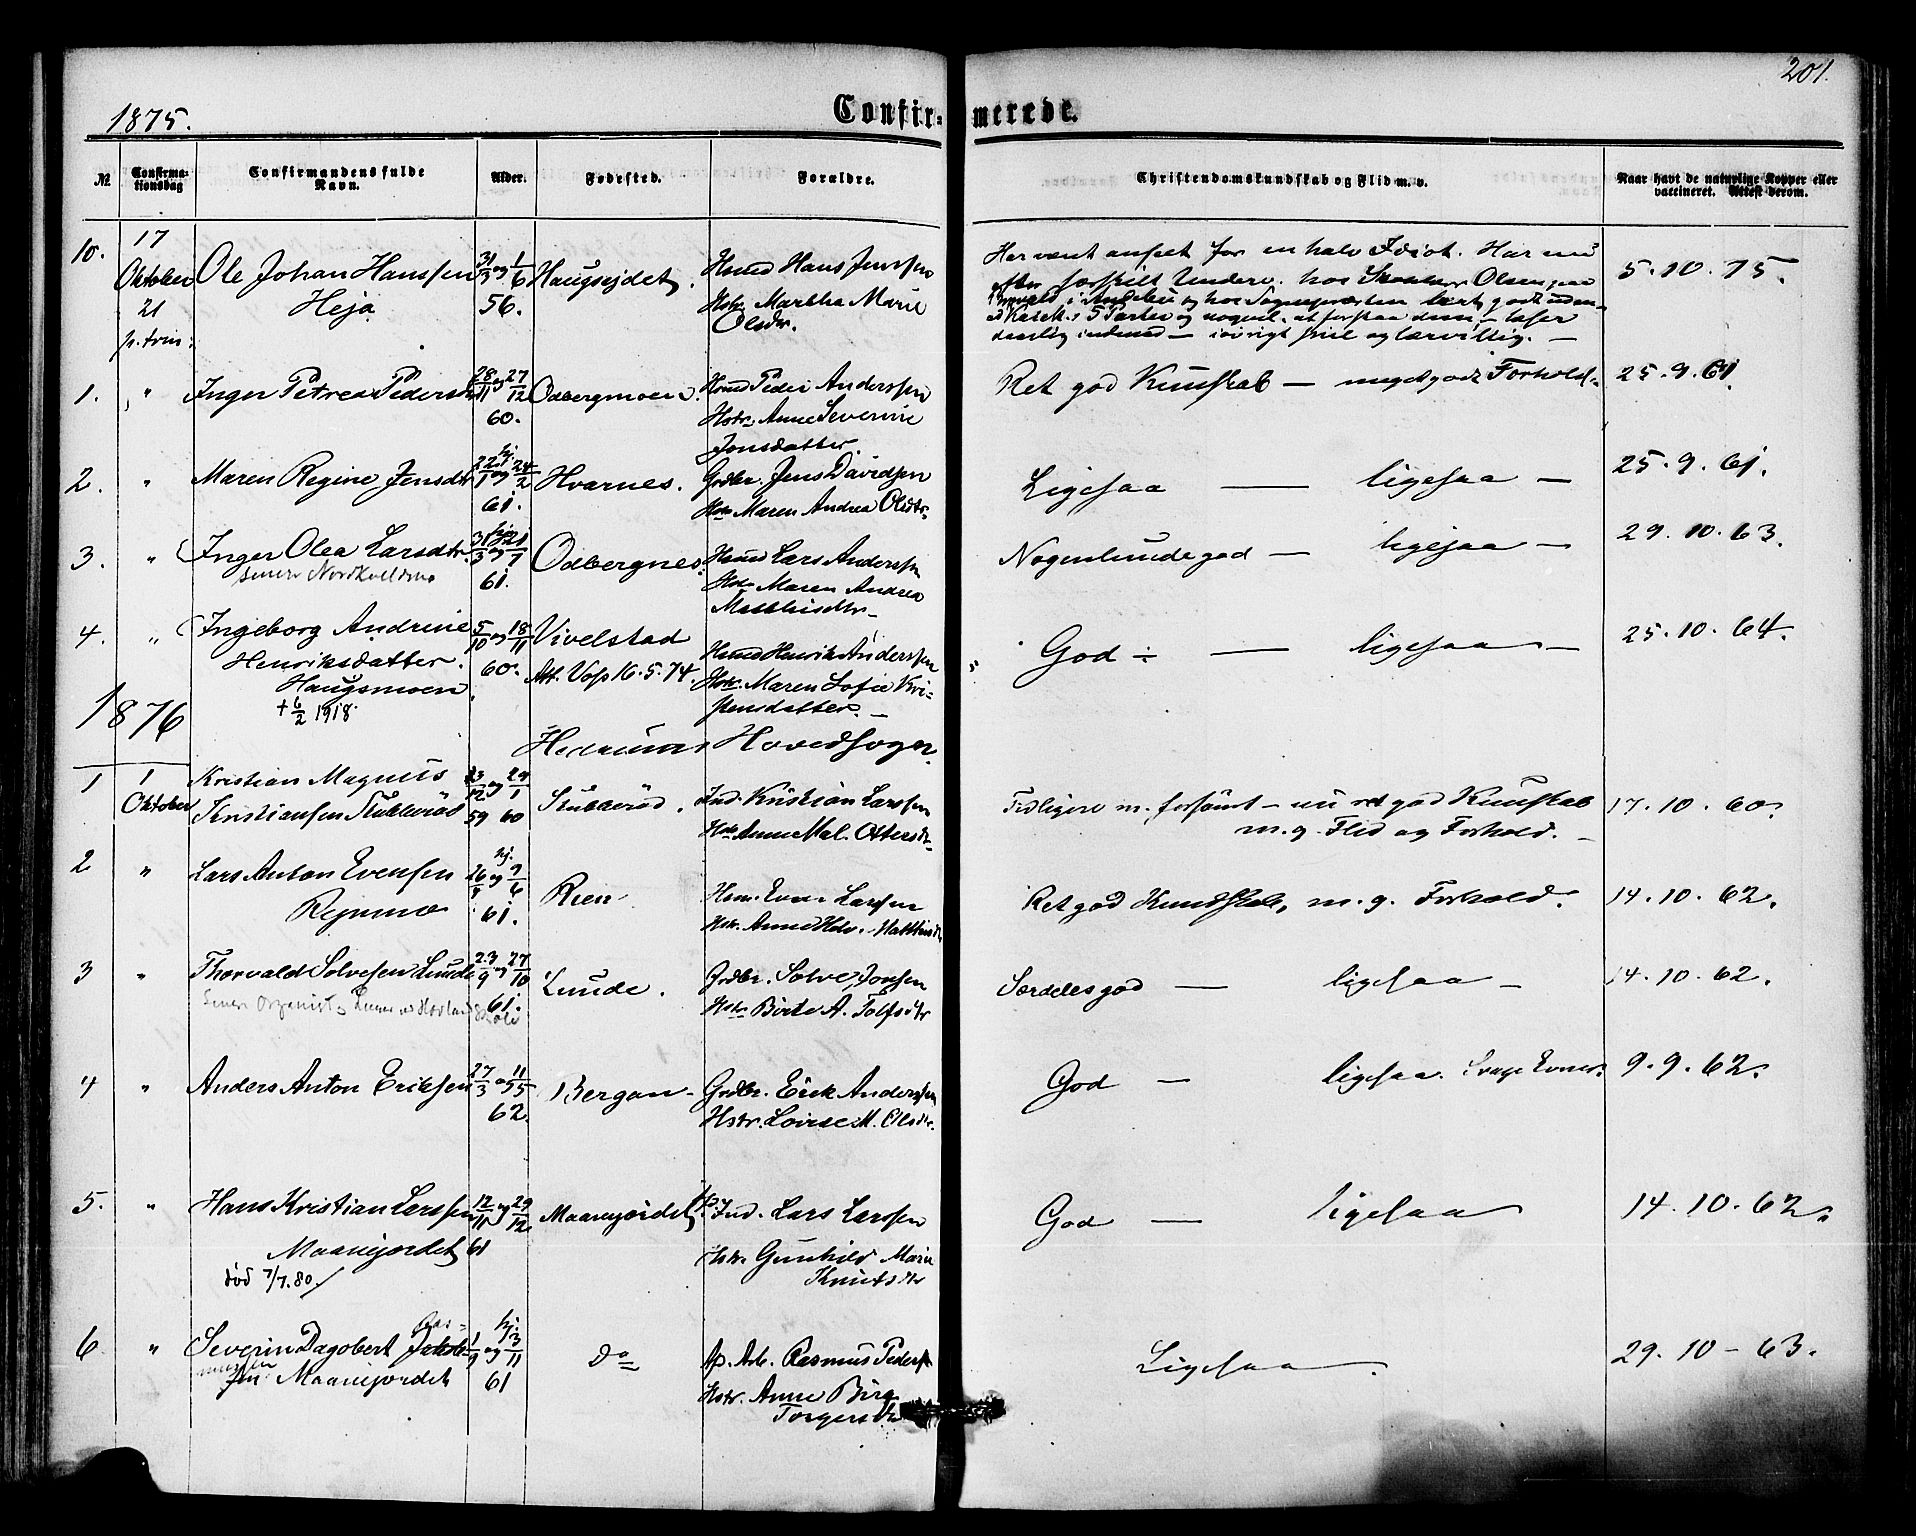 201.
1875.
Confirmerede.
№
Confirmationsdag
Confirmandens fulde Navn.
Alder.
Fødested.
Forældre.
Christendomskundskab og Flid m. v.
Naar havt de naturlige Kopper eller vaccineret. Attest derom.
10.
17 Oktober 21 p. trin:
Ole Johan Hanssen
Heja
31/3 og 1/6
56.
Haugsejdet.
Hsmd Hans Jenssen
Hstr. Martha Marie
Olsdtr.
Har været anseet for en halv Idiot. Har nu
efter særskilt Underv. hos Olsen paa
i Andebu og hos Sognepræsten lært godt uden-
ad 5 Parter og at forstaa dem, – læser
daarlig indenad – iøvrigt snil og lærvillig. –
5.10.75.
1. "
Inger Petrea Pedersdtr
28/11 og 27/12
60.
Odbergmoen.
Hsmd Peder Anderssen
Hstr. Anne Severine
Jonsdatter.
Ret god Kundskab – meget godt Forhold.
25.9.61.
2. "
Maren Regine Jensdtr
22/1 og hj. 24/2
61.
Hvarnes.
Grdbr. Jens Davidsen
Hstr Maren Andrea Olsdtr.
Ligesaa – ligesaa –
25.9.61.
3. "
Inger Olea Larsdtr.
31/3 og hj. 21/7
61.
Odbergnes.
Hsmd Lars Anderssen
Hstr. Maren Andrea
Mathisdtr.
Nogenlunde god – ligesaa –
29.10.63.
4. "
Ingeborg Andrine
Henriksdatter.
Haugsmoen.
+ 6/2 1918.
5/10 og 18/11
60.
Vivelstad
Att. 16.5.74.
Hsmd Henrik Anderssen
Hstr. Maren Sofie Kri-
stensdatter. –
God – ligesaa –
25.10.64.
1876
Hedrums Hovedsogn.
1
1 Oktober
Kristian Magnus
Kristiansen Stubberød
23/12 og 29/1
59 60
Stubberød.
Ind. Kristian Larssen
Hstr. Anne Mal. Ottersdtr.
Tidligere m. forsømt – nu ret god Kundskab
m. g. Flid og Forhold. –
17.10.60.
2 "
Lars Anton Evensen
26/4 og hj. 9/6
61.
Rien
Hsm. Even Larssen
Hstr. Anne Hedv. Mathisdtr
Ret god Kundskab, m. g. Forhold.
14.10.62.
3 "
Thorvald Solvesen Lunde
Senere Organist
23/9 og 27/10
61.
Lunde.
Grdbr. Solve Jonsen
Hstr. Birte A. Tolfsdtr
Særdeles god – ligesaa –
14.10.62.
4 "
Anders Anton Eriksen
27/3 11/5
62.
Bergan
Grdbr. Erik Anderssen
Hstr. Lovise M. Olsdtr.
God – ligesaa. Svage Evner.
9.9.62.
5. "
Hans Kristian Larssen
Maanejordet
død 7/7.80.
12/11 og 29/12
61
Maanejordet
Ind. Lars Larssen
Hstr. Gunhild Marie
Knutsdtr
God – ligesaa
14.10.62.
6 "
Severin Dagobert Jakob-
Ras-
mussen
sen Maanejordet
1/9 og hj. 3/11
61
do
Arb. Rasmus Pederssn
Hstr. Anne Birg
Torgersdtr
Ligesaa.
29.10-63.